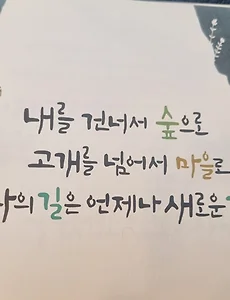 내를 건너서 숲으로
고개를 넘어서 마을로
의 길은 언제나 새로운